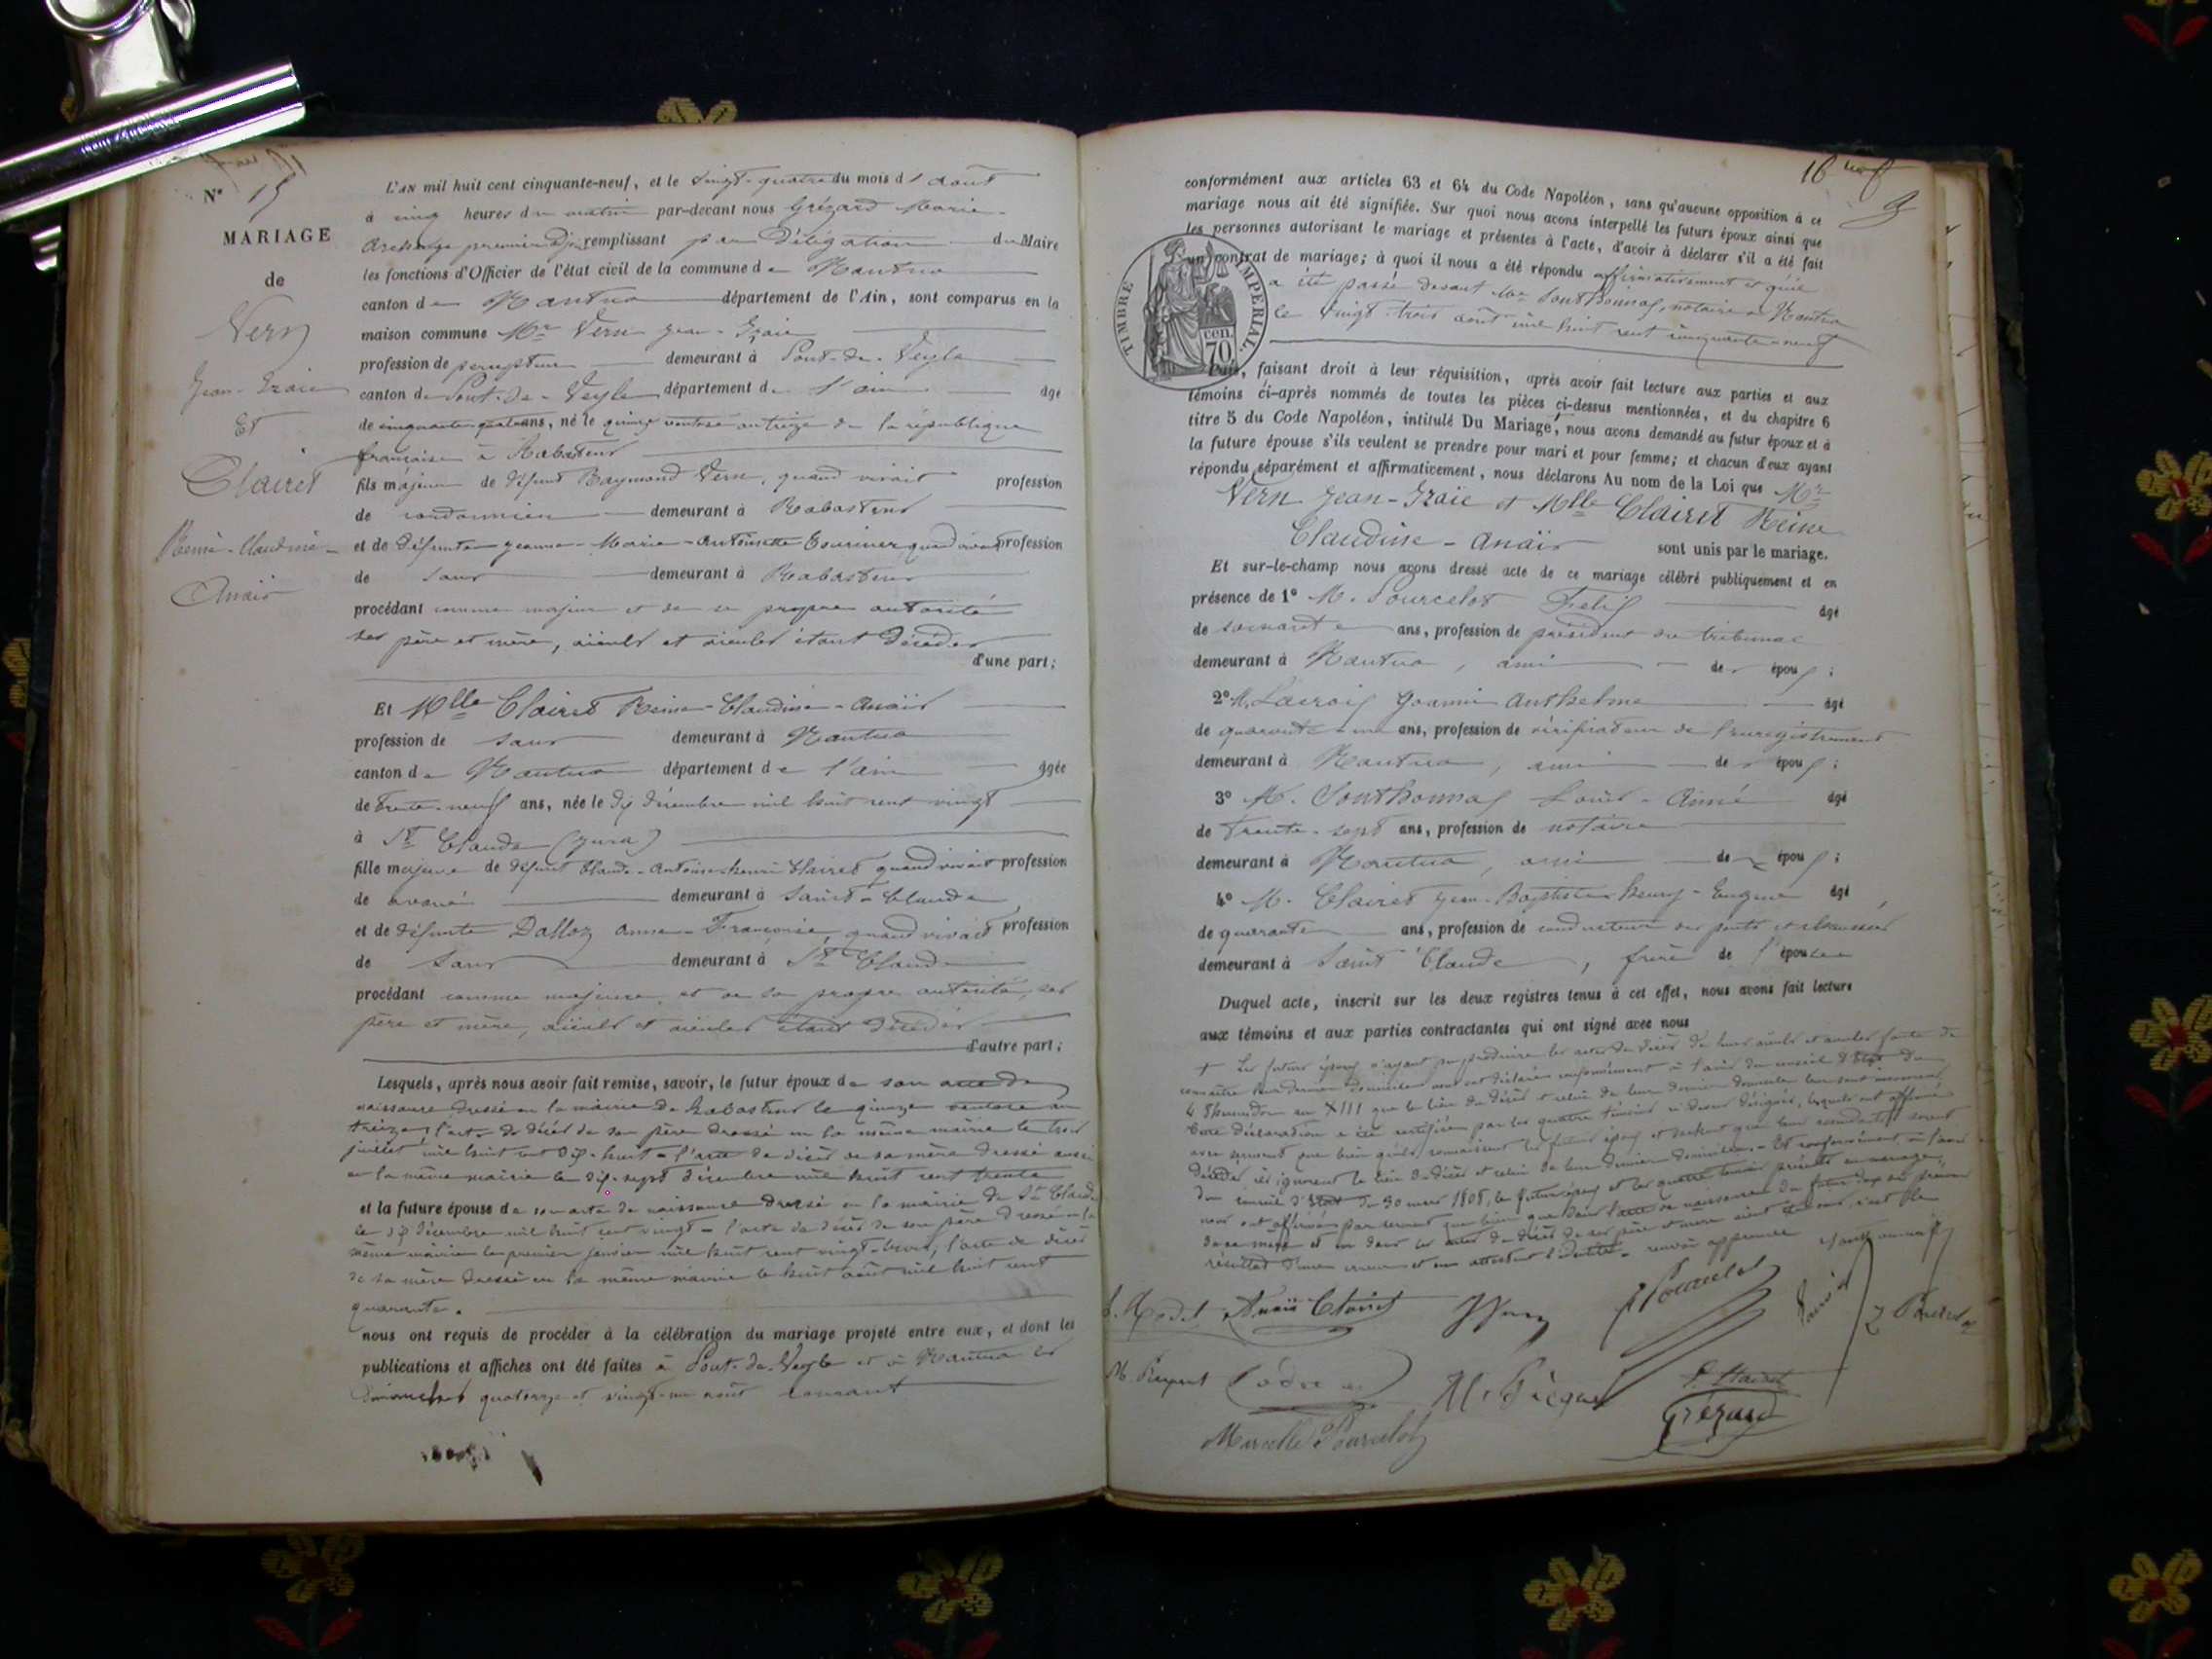 N° 15
MARIAGE
de
Vern
Jean-Izaie
Et
Clairet
Reine-Claudine-
Anaïs
L'AN mil huit cent cinquante-neuf, et le vingt-quatre du mois d'août
à cinq heures du matin par-devant nous Grézard Marie-
Archange premier adjt remplissant par délégation du Maire
les fonctions d'Officier de l'état civil de la commune de Nantua
canton de Nantua département de l'Ain, sont comparus en la
maison commune Mr Vern Jean-Izaie
profession de percepteur demeurant à Pont-de-Veyle
canton de Pont-de-Veyle département de l'ain âgé
de cinquante quatre ans, né le quinze ventose an treize de la république
française à Rabastens
fils majeur de défunt Raymond Vern, quand vivait profession
de cordonnier demeurant à Rabastens
et de défunte Jeanne-Marie-Antoinette quand vivait profession
de sans demeurant à Rabastens
procédant comme majeur et de sa propre autorité
ses père et mère, aïeuls et aïeules étant décédés
d'une part;
Et Mlle Clairet Reine-Claudine-Anaïs
profession de sans demeurant à Nantua
canton de Nantua département de l'ain âgée
de trente-neuf ans, née le dix décembre mil huit cent vingt
à St Claude (Jura)
fille majeure de défunt Claude-Antoine-henri Clairet quand vivait profession
de avoué demeurant à Saint-Claude
et de défunte Dalloz Anne-Françoise, quand vivait profession
de sans demeurant à St Claude
procédant comme majeure et de sa propre autorité, ses
père et mère, aïeuls et aïeules étant décédés
d'autre part;
Lesquels, après nous avoir fait remise, savoir, le futur époux de son acte de
naissance dressé en la mairie de Rabastens le quinze ventose an
treize, l'acte de décès de son père dressé en la même mairie le trois
juillet mil huit cent dix-huit - l'acte de décès de sa mère dressé aussi
en la même mairie le dix-sept décembre mil huit cent trente
et la future épouse de son acte de naissance dressé en la mairie de St Claude
le dix décembre mil huit cent vingt - l'acte de décès de son père dressé en la
même mairie le premier janvier mil huit cent vingt- l'acte de décès
de sa mère dressé en la même mairie le huit août mil huit cent
quarante.
nous ont requis de procéder à la célébration du mariage projeté entre eux, et dont les
publications et affiches ont été faites à Pont-de-Veyle et à Nantua les
dimanches quatorze et vingt-un août courant
conformément aux articles 63 et 64 du Code Napoléon, sans qu'aucune opposition à ce
mariage nous ait été signifiée. Sur quoi nous avons interpellé les futurs époux ainsi que
les personnes autorisant le mariage et présentes à l'acte, d'avoir à déclarer s'il a été fait
un contrat de mariage; à quoi il nous a été répondu affirmativement et qu'il
a été passé devant Me Southonnax, notaire à Nantua
le vingt trois août mil huit cent cinquante-neuf
TIMBRE IMPERIAL
70 cen.
faisant droit à leur réquisition, après avoir fait lecture aux parties et aux
témoins ci-après nommés de toutes les pièces ci-dessus mentionnées, et du chapitre 6
titre 5 du Code Napoléon, intitulé Du Mariage, nous avons demandé au futur époux et à
la future épouse s'ils veulent se prendre pour mari et pour femme; et chacun d'eux ayant
répondu séparément et affirmativement, nous déclarons Au nom de la Loi que Mr
Vern Jean-Izaie et Mlle Clairet Reine
Claudine-Anaïs sont unis par le mariage.
Et sur-le-champ nous avons dressé acte de ce mariage célébré publiquement et en
présence de 1° M. Pourcelot Felix âgé
de soixante ans, profession de président du tribunal
demeurant à Nantua, ami des époux;
2° M. Lacroix Joannin Anthelme âgé
de quarante-un ans, profession de vérificateur de l'enregistrement
demeurant à Nantua, ami des époux;
3° M. Southonnax Louis-Aimé âgé
de trente-sept ans, profession de notaire
demeurant à Nantua, ami des époux;
4° M. Clairet Jean-Baptiste-henry-Eugène âgé
de quarante ans, profession de conducteur des ponts et chaussées
demeurant à Saint Claude, frère de l'épouse
Duquel acte, inscrit sur les deux registres tenus à cet effet, nous avons fait lecture
aux témoins et aux parties contractantes qui ont signé avec nous
+ Les futurs époux n'ayant pu produire les actes de décès de leurs aïeuls et aïeules faute de
connaître leur dernier domicile nous ont déclaré conformément à l'avis du conseil d'Etat du
4 thermidor an XIII que le lieu du décès et celui de leur dernier domicile leur sont inconnus,
Cette déclaration a été certifiée par les quatre témoins ci-dessus désignés, lesquels ont affirmé
avec serment que bien qu'ils connaissent les futurs époux
décédés, ils ignorent le lieu du décès et celui de leur dernier domicile. - Et conformément à l'avis
du conseil d'Etat du 30 mars 1808, les futurs époux et les quatre témoins présents au mariage
nous ont affirmé par serment que bien que dans l'acte de naissance du futur
de sa mère et dans les actes de décès de ses père et mère
résultat d'une erreur et en attestent l'identité - renvoi approuvé
Anaïs Clairet Pourcelot
Grézard
Marcelle Pourcelot